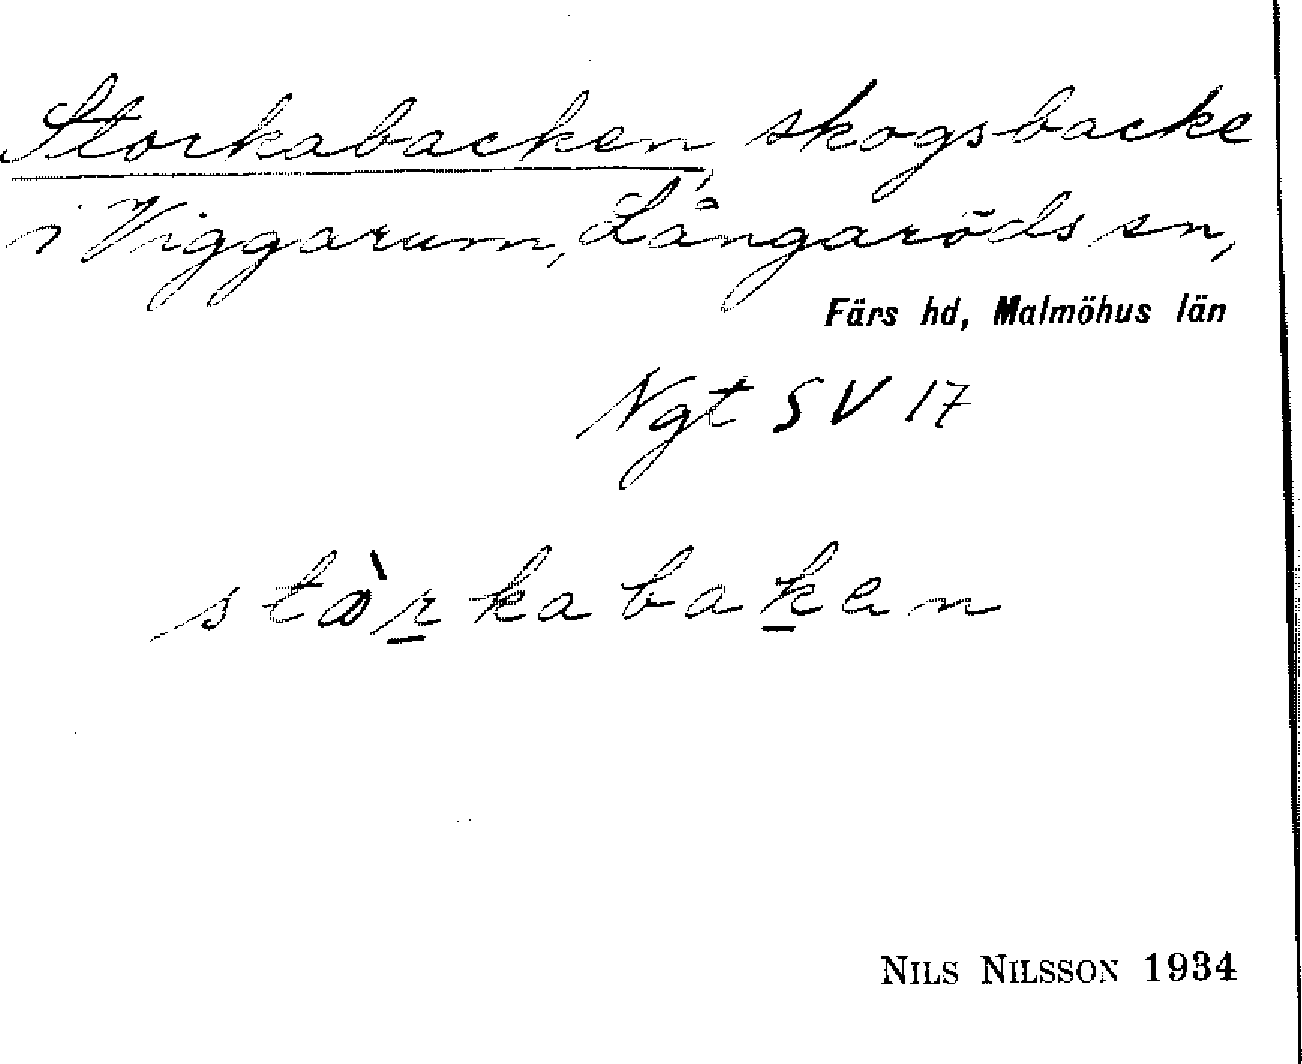 Storkabacken, skogsbacke
i Viggarum, Långaröds sn,
Färs hd, Malmöhus län
Ngt SV 17
stòrkabaken
NILS NILSSON 1934